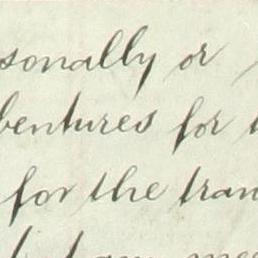 sonally or
bentures for
for the tran